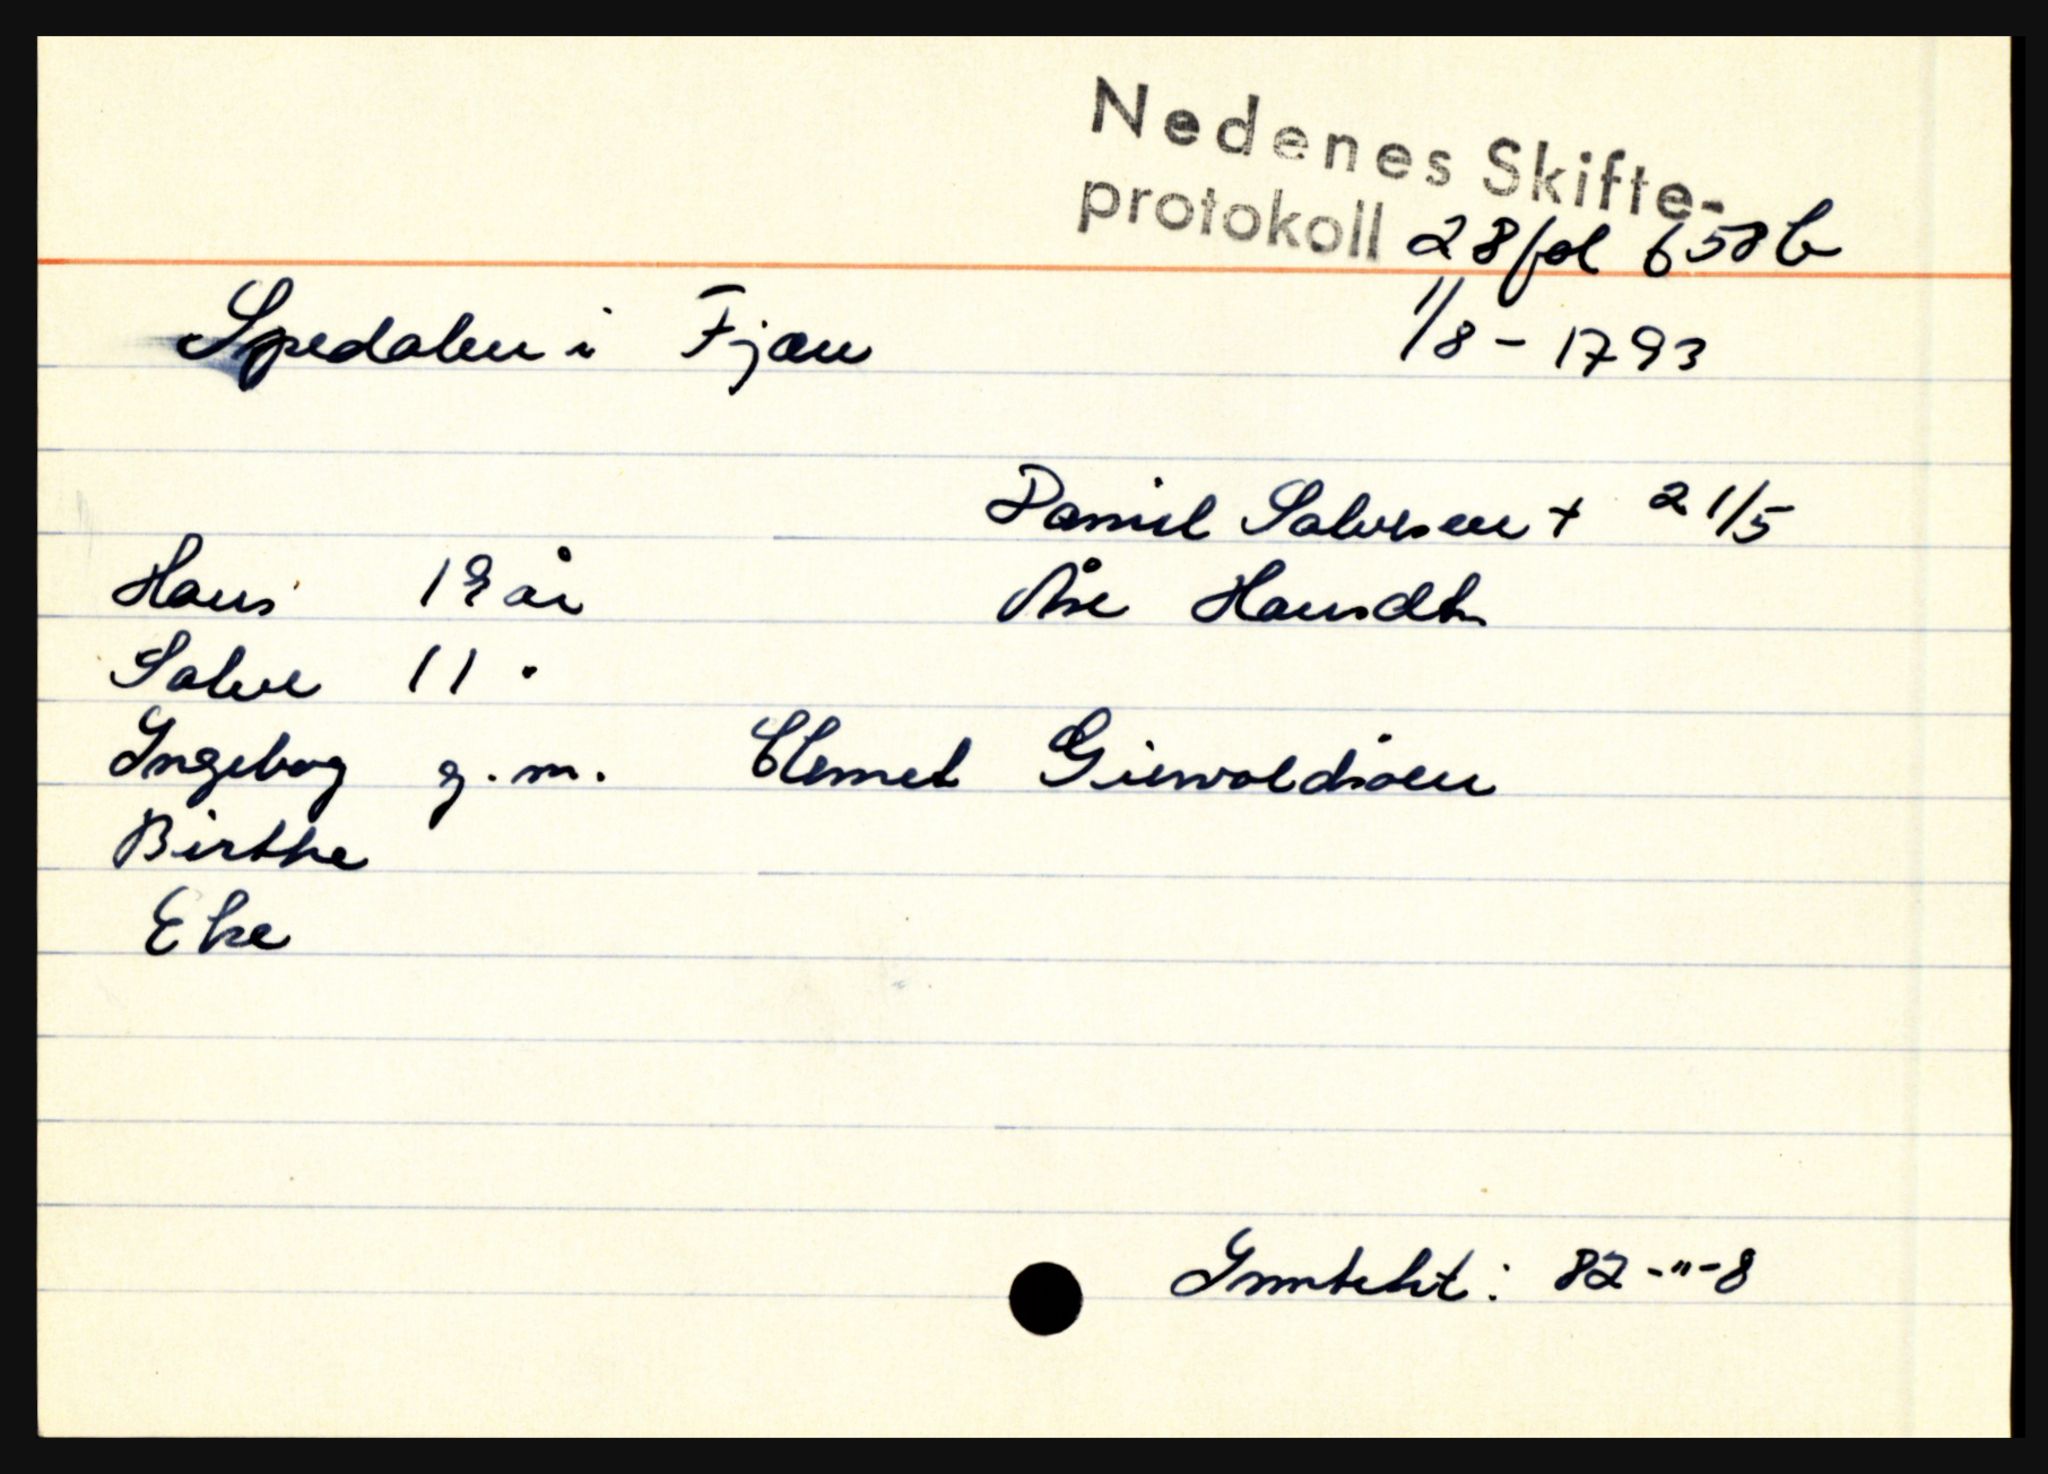 Nedenes Skifte-
protokoll 28 fol 658 b
Spedalen i Fjære 1/8 - 1793
Daniel Salvesen + 21/5
Hans 19 år Åse Hansdtr
Salve 11 "
Ingeborg g.m. Clemet Giervoldsen
Birthe
Else
Inntekt: 82-"-8